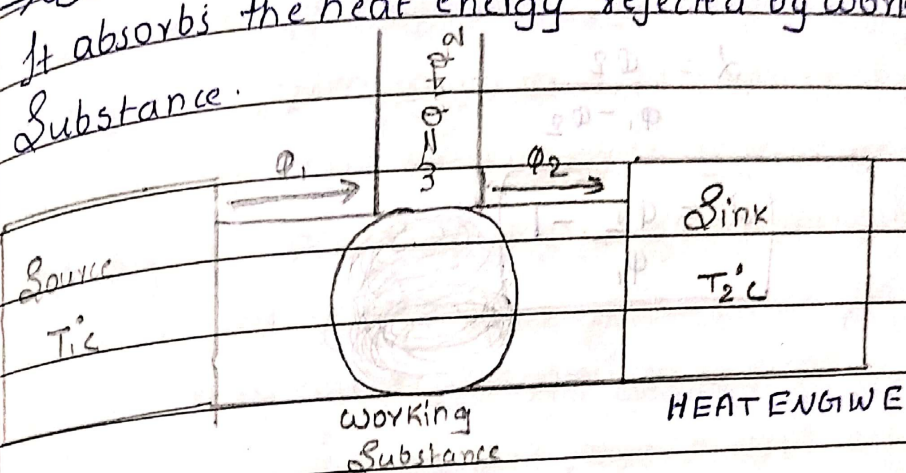 It absorbs the heat energy rejected by work
Substance.
Q₁
Q₂
Sink
Source
T₂°C
T₁°C
Working
Substance
HEAT ENGINE